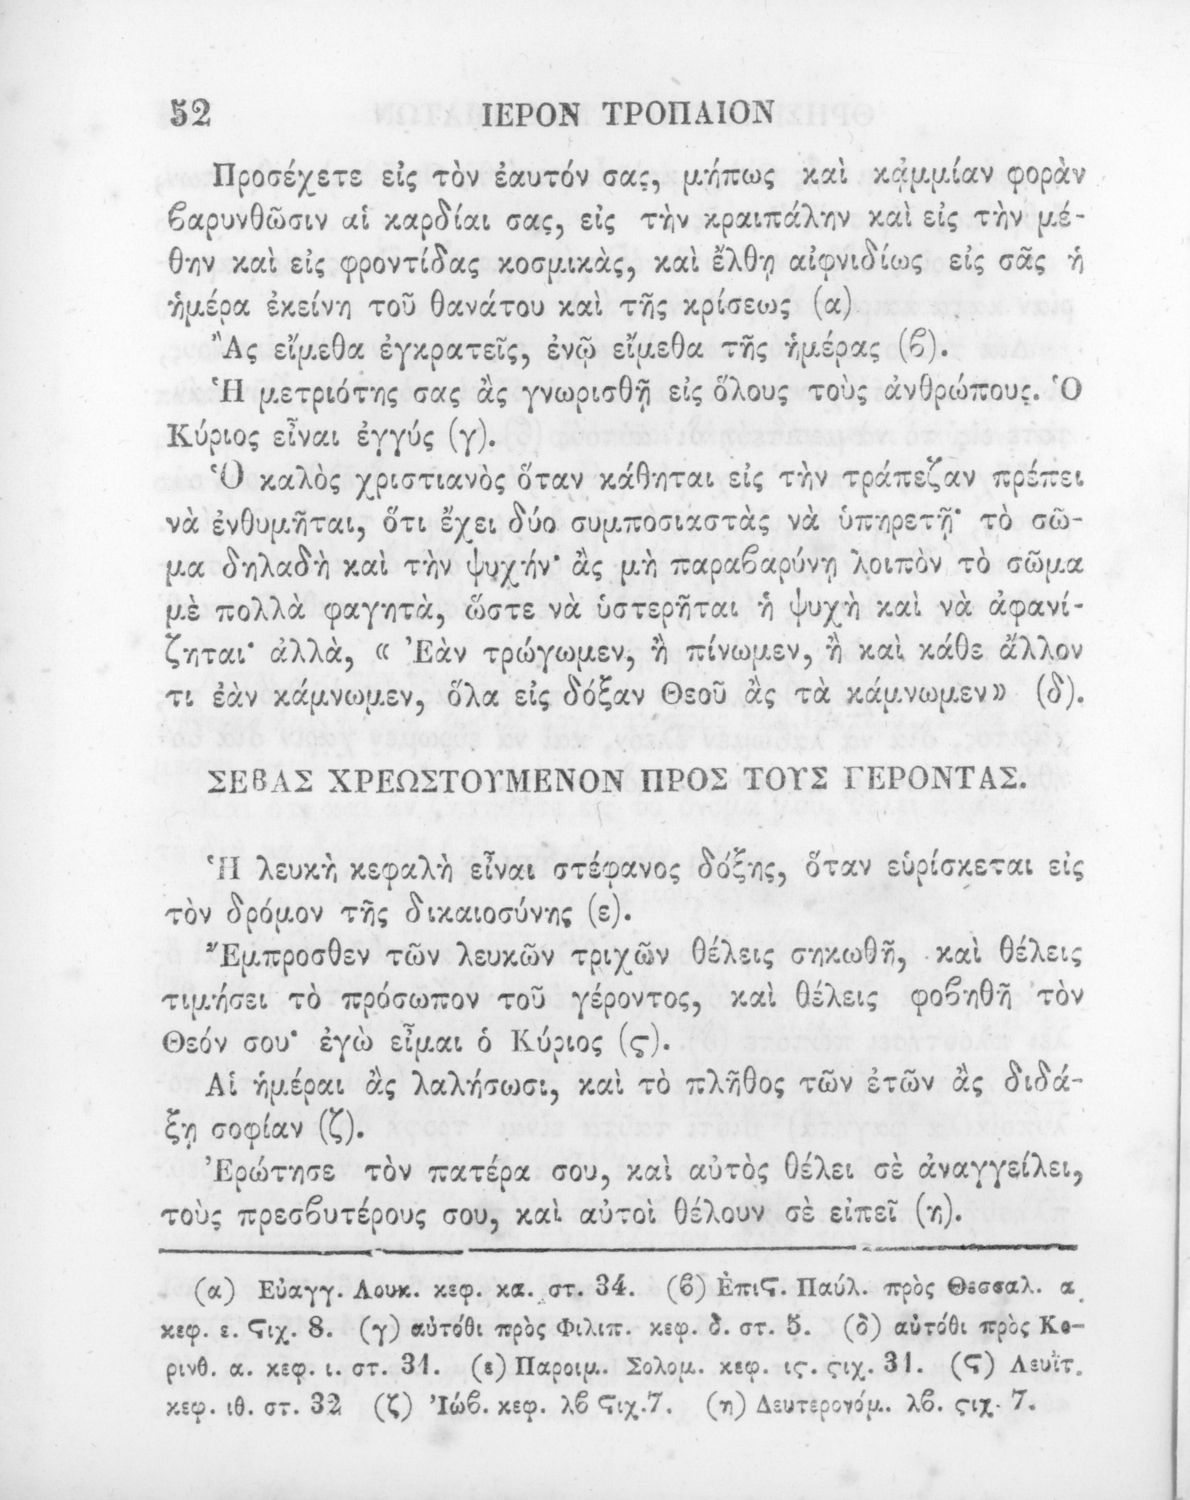 52 ΙΕΡΟΝ ΤΡΟΠΑΙΟΝ
Προσέχετε εἰς τὸν ἑαυτόν σας, μήπως καὶ κἀμμίαν φορὰν
βαρυνθῶσιν αἱ καρδίαι σας, εἰς τὴν κραιπάλην καὶ εἰς τὴν μέ-
θην καὶ εἰς φροντίδας κοσμικὰς, καὶ ἔλθῃ αἰφνιδίως εἰς σᾶς ἡ
ἡμέρα ἐκείνη τοῦ θανάτου καὶ τῆς κρίσεως (α)
Ἂς εἴμεθα ἐγκρατεῖς, ἐνῷ εἴμεθα τῆς ἡμέρας (β).
Ἡ μετριότης σας ἂς γνωρισθῇ εἰς ὅλους τοὺς ἀνθρώπους. Ὁ
Κύριος εἶναι ἐγγύς (γ).
Ὁ καλὸς χριστιανὸς ὅταν κάθηται εἰς τὴν τράπεζαν πρέπει
νὰ ἐνθυμῆται, ὅτι ἔχει δύο συμποσιαστὰς νὰ ὑπηρετῇ· τὸ σῶ-
μα δηλαδὴ καὶ τὴν ψυχήν· ἂς μὴ παραβαρύνῃ λοιπὸν τὸ σῶμα
μὲ πολλὰ φαγητὰ, ὥστε νὰ ὑστερῆται ἡ ψυχὴ καὶ νὰ ἀφανί-
ζηται· ἀλλὰ, « Ἐὰν τρώγωμεν, ἢ πίνωμεν, ἢ καὶ κάθε ἄλλον
τι ἐὰν κάμνωμεν, ὅλα εἰς δόξαν Θεοῦ ἂς τὰ κάμνωμεν» (δ).
ΣΕΒΑΣ ΧΡΕΩΣΤΟΥΜΕΝΟΝ ΠΡΟΣ ΤΟΥΣ ΓΕΡΟΝΤΑΣ.
Ἡ λευκὴ κεφαλὴ εἶναι στέφανος δόξης, ὅταν εὑρίσκεται εἰς
τὸν δρόμον τῆς δικαιοσύνης (ε).
Ἔμπροσθεν τῶν λευκῶν τριχῶν θέλεις σηκωθῆ, καὶ θέλεις
τιμήσει τὸ πρόσωπον τοῦ γέροντος, καὶ θέλεις φοβηθῆ τὸν
Θεόν σου· ἐγὼ εἶμαι ὁ Κύριος (ϛ).
Αἱ ἡμέραι ἂς λαλήσωσι, καὶ τὸ πλῆθος τῶν ἐτῶν ἂς διδά-
ξῃ σοφίαν (ζ).
Ἐρώτησε τὸν πατέρα σου, καὶ αὐτὸς θέλει σὲ ἀναγγείλει,
τοὺς πρεσβυτέρους σου, καὶ αὐτοὶ θέλουν σὲ εἰπεῖ (η).
(α) Εὐαγγ. Λουκ. κεφ. κα. στ. 34. (β) Ἐπιϛ. Παύλ. πρὸς Θεσσαλ. α.
κεφ. ε. ϛιχ. 8. (γ) αὐτόθι πρὸς Φιλιπ. κεφ. δ. στ. 5. (δ) αὐτόθι πρὸς Κο-
ρινθ. α. κεφ. ι. στ. 31. (ε) Παροιμ. Σολομ. κεφ. ις. ϛιχ. 31. (ϛ) Λευϊτ.
κεφ. ιθ. στ. 32 (ζ) Ἰώβ. κεφ. λβ ϛιχ.7. (η) Δευτερονόμ. λβ. ϛιχ. 7.